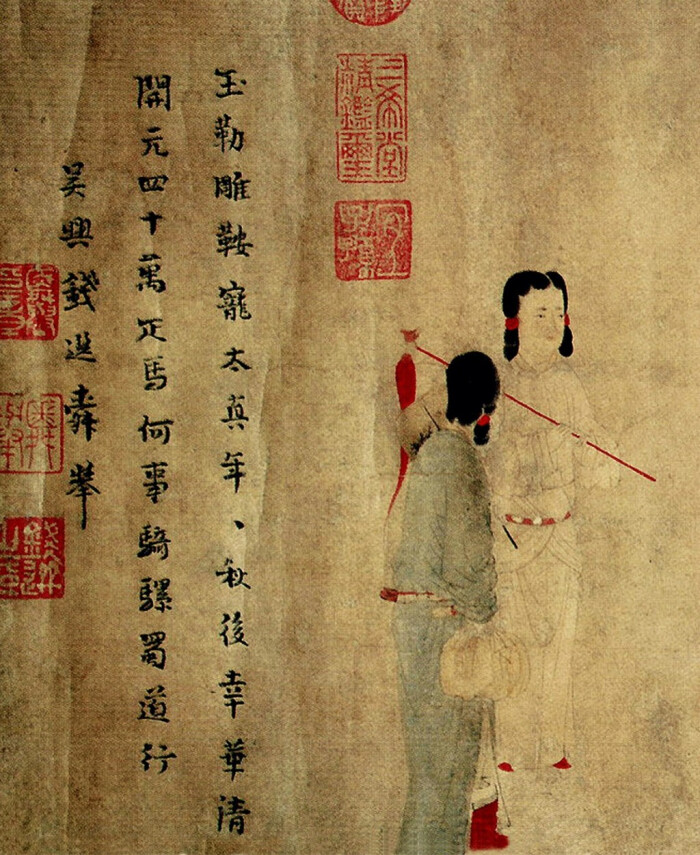 三希堂精鑑璽
宜子孫
玉勒雕鞍寵太真年、秋後幸華清
開元四十萬疋馬何事騎騾蜀道行
吳興錢選舜舉